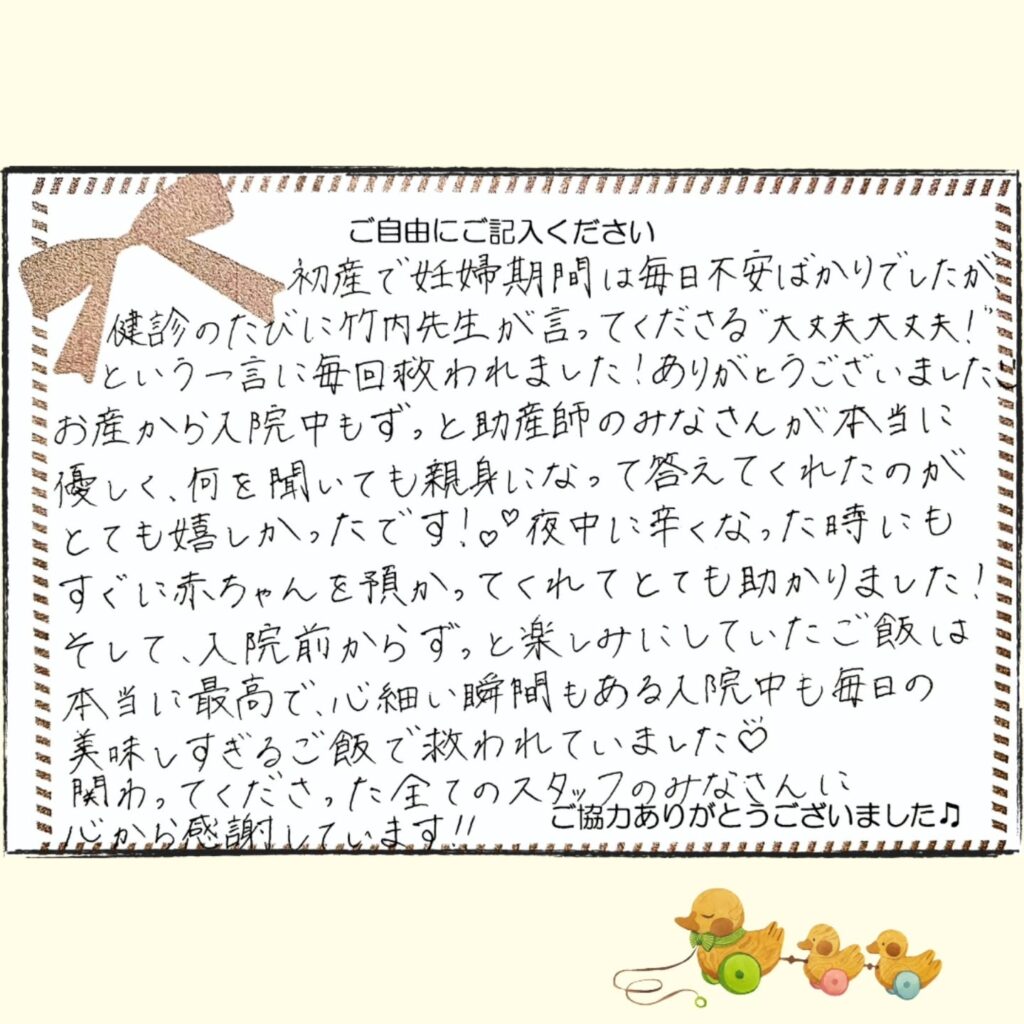 ご自由にご記入ください
初産で妊婦期間は毎日不安ばかりでしたが、
健診のたびに竹内先生が言ってくださる"大丈夫大丈夫!"
という一言に毎回救われました!ありがとうございました
お産から入院中もずっと助産師のみなさんが本当に
優しく、何を聞いても親身になって答えてくれたのが
とても嬉しかったです!♡♡夜中に辛くなった時にも
すぐに赤ちゃんを預かってくれてとても助かりました!
そして、入院前からずっと楽しみにしていたご飯は
本当に最高で、心細い瞬間もある入院中も毎日の
美味しすぎるご飯で救われていました♡
関わってくださった全てのスタッフのみなさんに
心から感謝しています!!
ご協力ありがとうございました♫